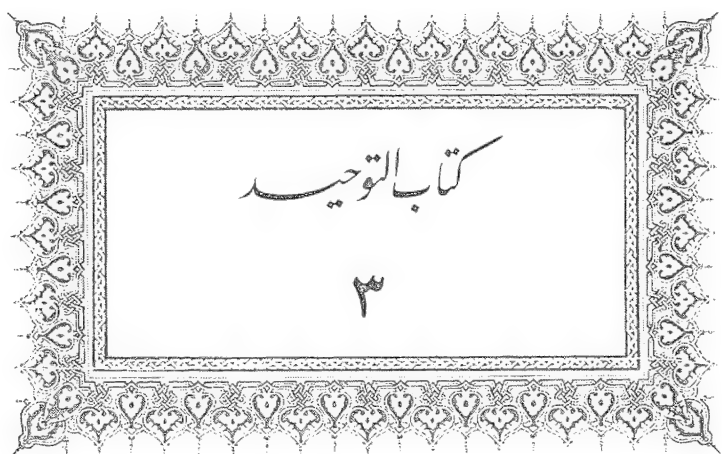 كتاب التوحيد
٣